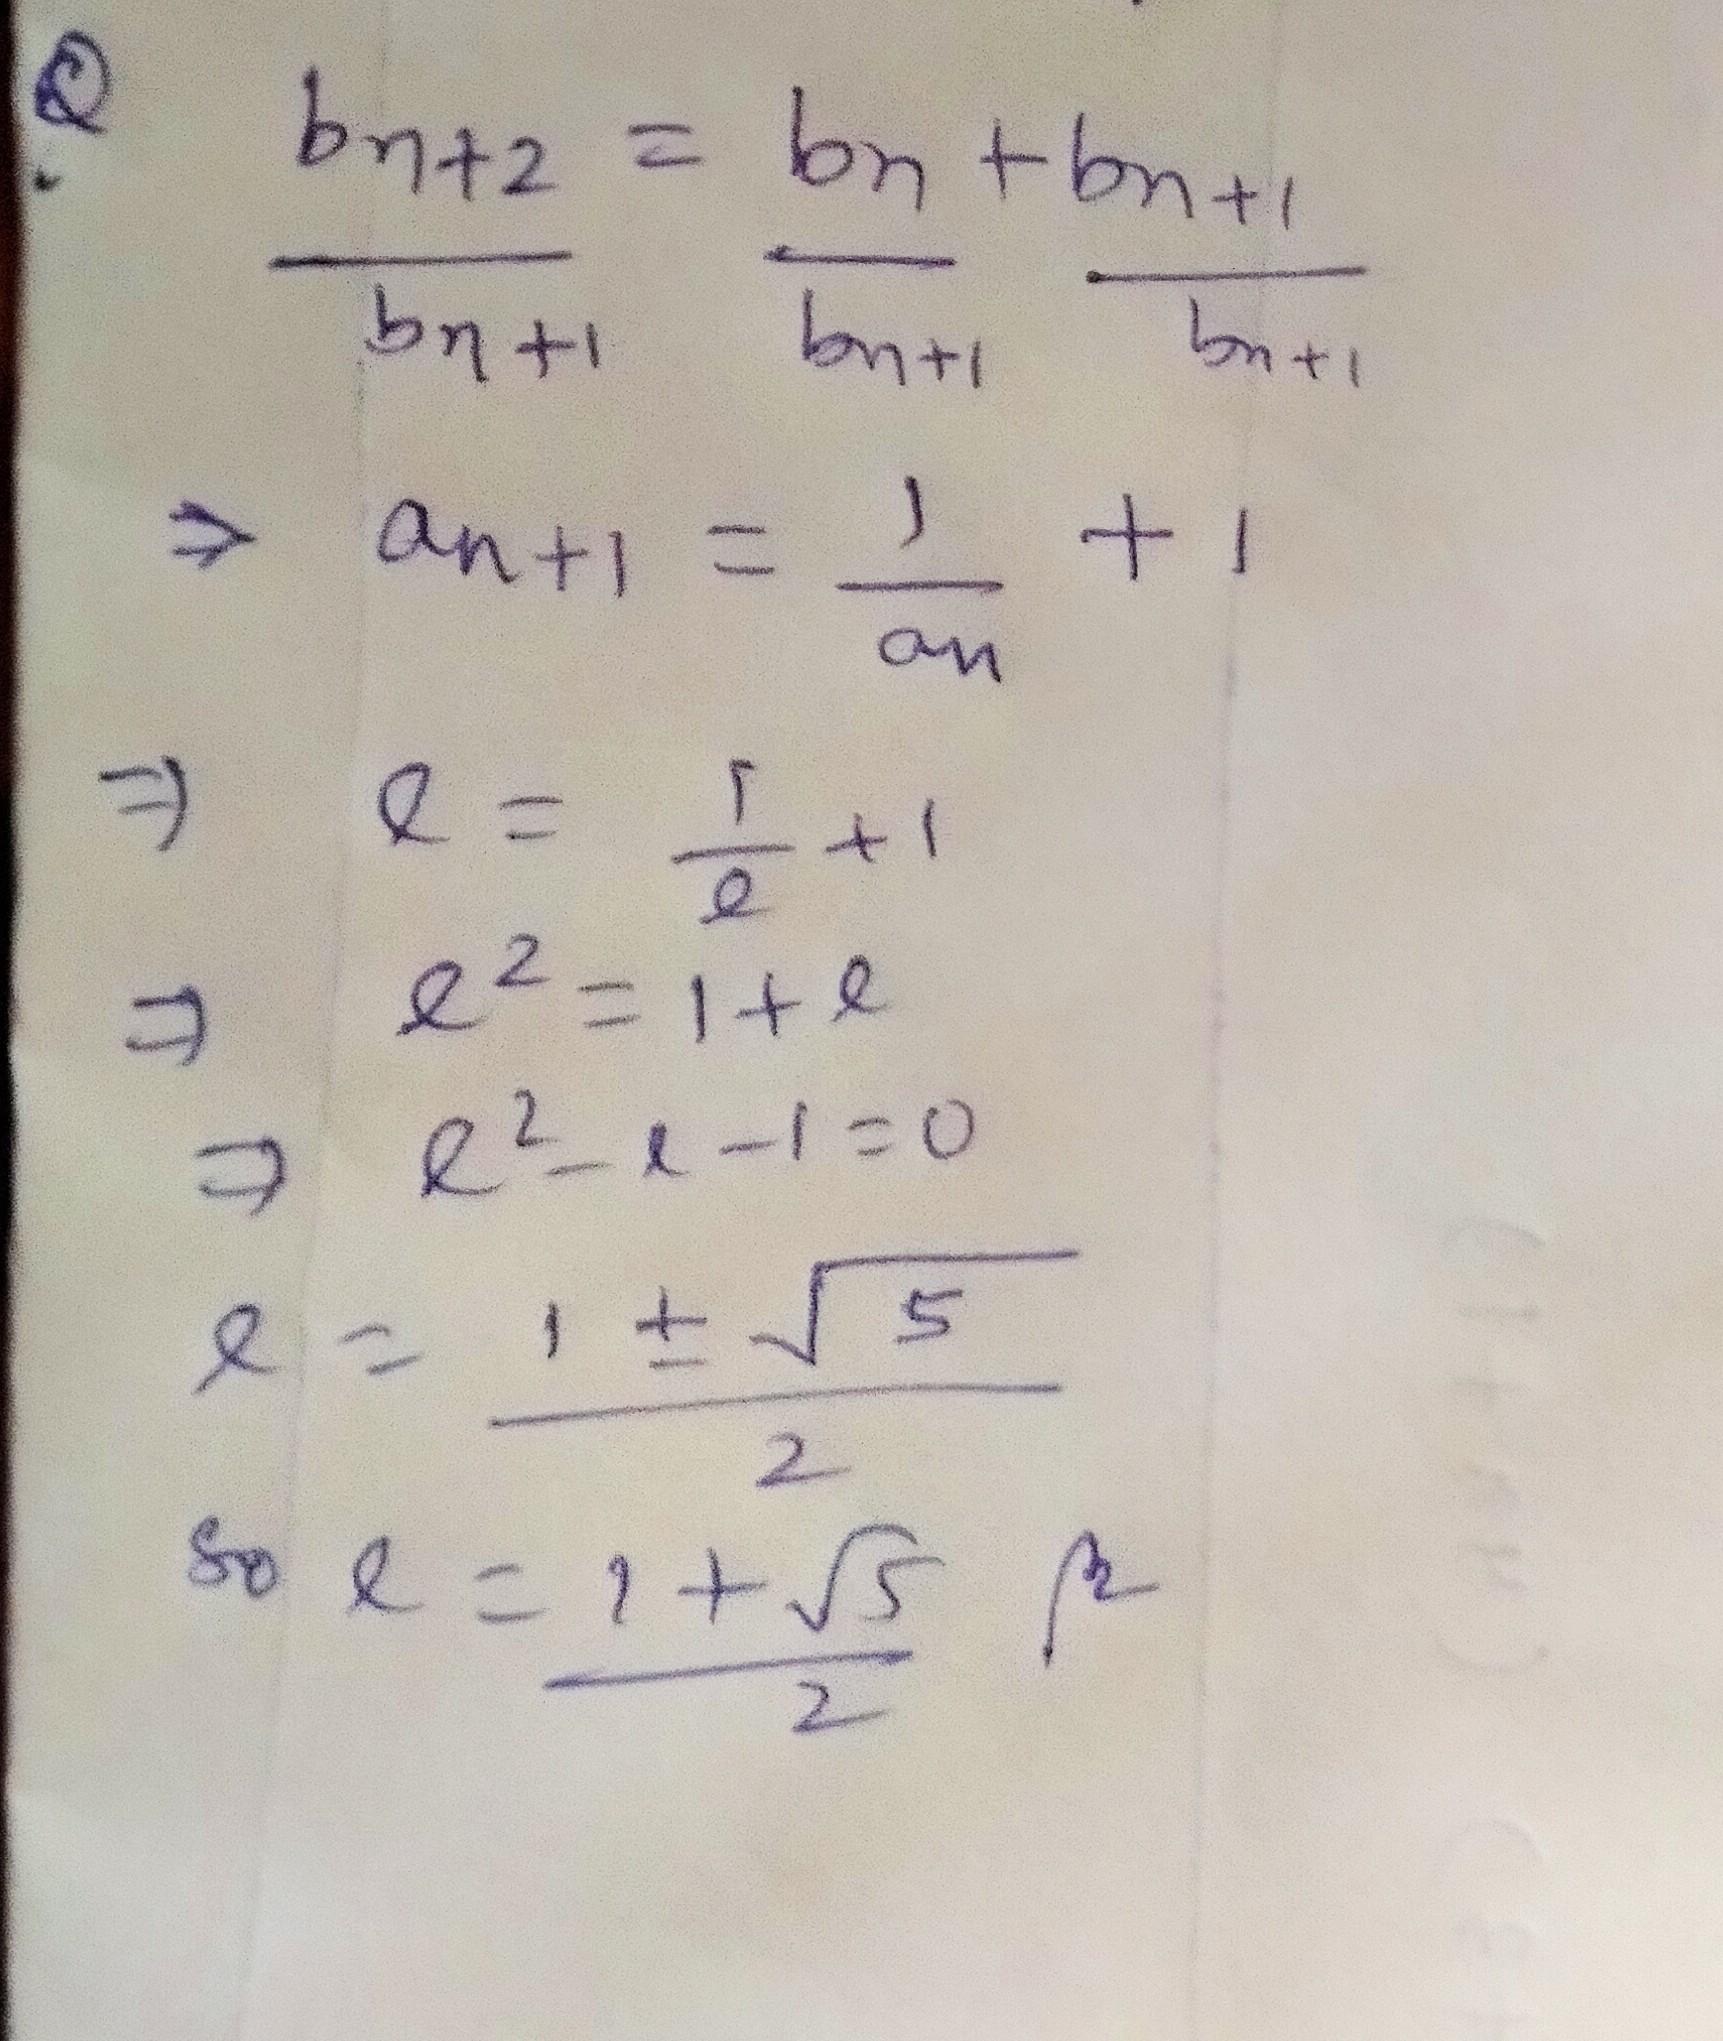 Q. bn+2 / bn+1 = bn / bn+1 + bn+1 / bn+1
⇒ an+1 = 1/an + 1
⇒ l = 1/l + 1
⇒ l² = 1 + l
⇒ l² - l - 1 = 0
l = (1 ± √5) / 2
so l = (1 + √5) / 2